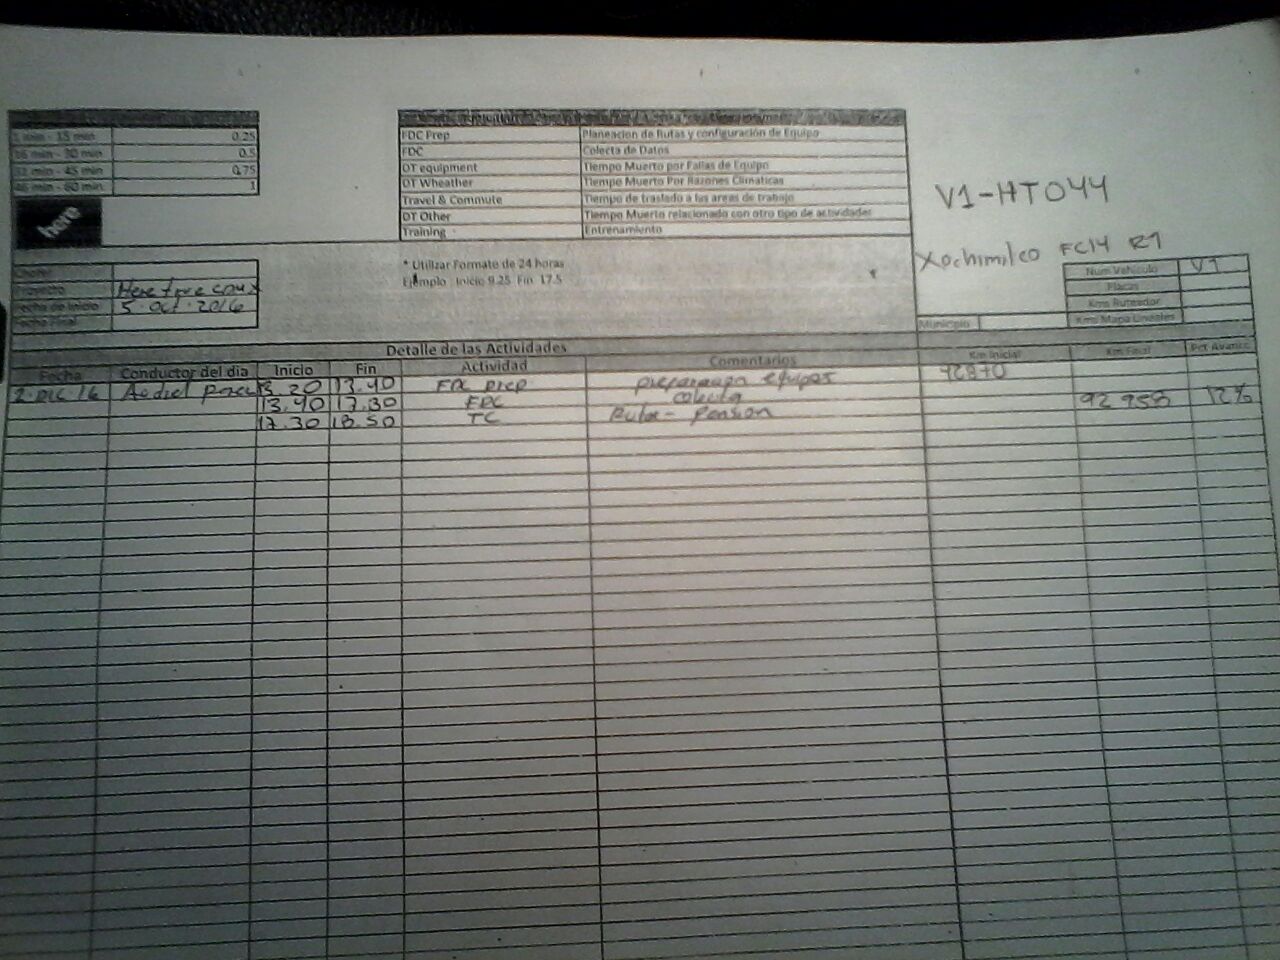 1 min - 15 min 0.25
16 min - 30 min 0.5
31 min - 45 min 0.75
46 min - 60 min 1
here
FDC Prep Planeacion de Rutas y configuración de Equipo
FDC Colecta de Datos
DT equipment Tiempo Muerto por Fallas de Equipo
DT Wheather Tiempo Muerto Por Razones Climaticas
Travel & Commute Tiempo de traslado a las areas de trabajo
DT Other Tiempo Muerto relacionado con otro tipo de actividades
Training Entrenamiento
V1-HT044
Xochimilco FC14 R1
* Utilizar Formato de 24 horas
Ejemplo Inicio 9.25 Fin 17.5
Proyecto Here true
Fecha de Inicio 5. Oct. 2016
Fecha Final
Num Vehiculo V1
Placas
Kms Ruteador
Kms Mapa Lineales
Municipio
Detalle de las Actividades
Fecha Conductor del dia Inicio Fin Actividad Comentarios Km Inicial Km Final Pct Avance
2. Dic 16 13.20 13.40 FDC prep preparacion equipos 92870
13.40 17.30 FDC colecta 92 958 12%
17.30 18.50 TC Ruta - Pension